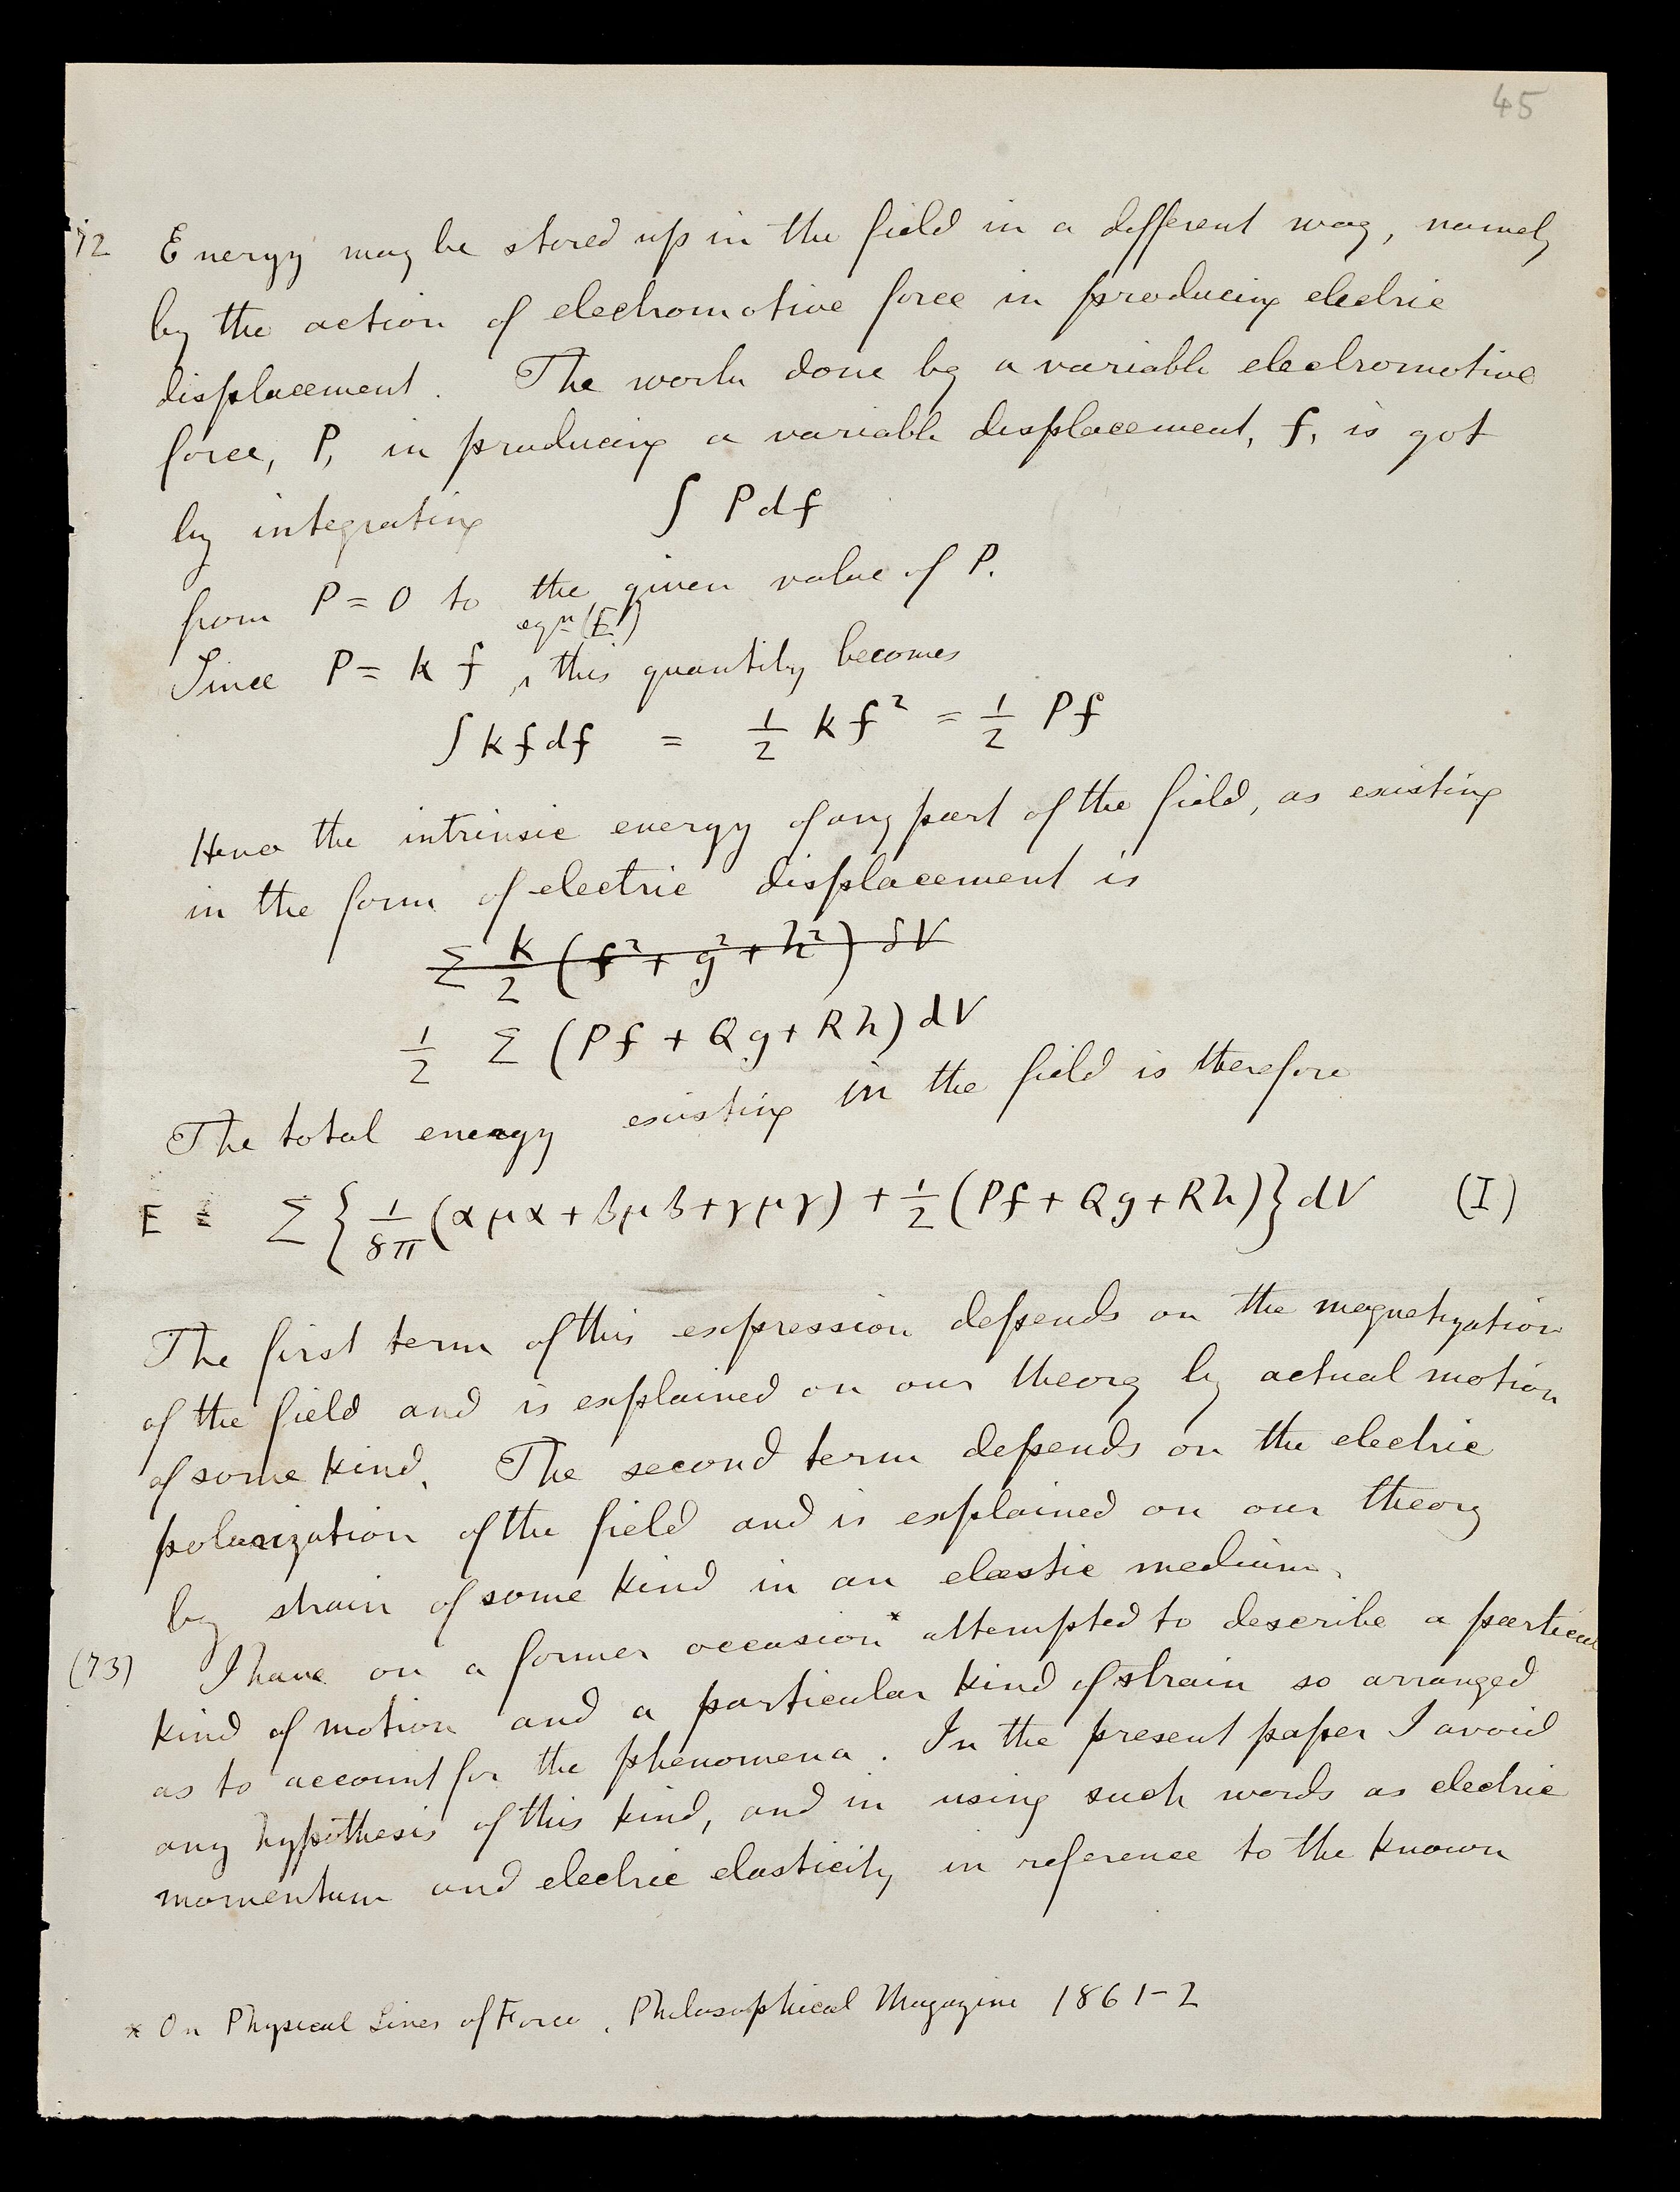 45
72 Energy may be stored up in the field in a different way, namely
by the action of electromotive force in producing electric
displacement. The work done by a variable electromotive
force, P, in producing a variable displacement, f, is got
by integrating ∫ P df
from P = 0 to the given value of P.
eqn (E)
Since P = k f ‸ this quantity becomes
∫ k f df = 1/2 k f² = 1/2 P f
Hence the intrinsic energy of any part of the field, as existing
in the form of electric displacement is
Σ k/2 (f² + g² + h²) δV
1/2 Σ (Pf + Qg + Rh) dV
The total energy existing in the field is therefore
E = Σ { 1/8π (αμα + βμβ + γμγ) + 1/2 (Pf + Qg + Rh) } dV (I)
The first term of this expression depends on the magnetization
of the field and is explained on our theory by actual motion
of some kind. The second term depends on the electric
polarization of the field and is explained on our theory
by strain of some kind in an elastic medium.
(73) I have on a former occasion * attempted to describe a particular
kind of motion and a particular kind of strain so arranged
as to account for the phenomena. In the present paper I avoid
any hypothesis of this kind, and in using such words as electric
momentum and electric elasticity in reference to the known
* On Physical Lines of Force. Philosophical Magazine 1861-2